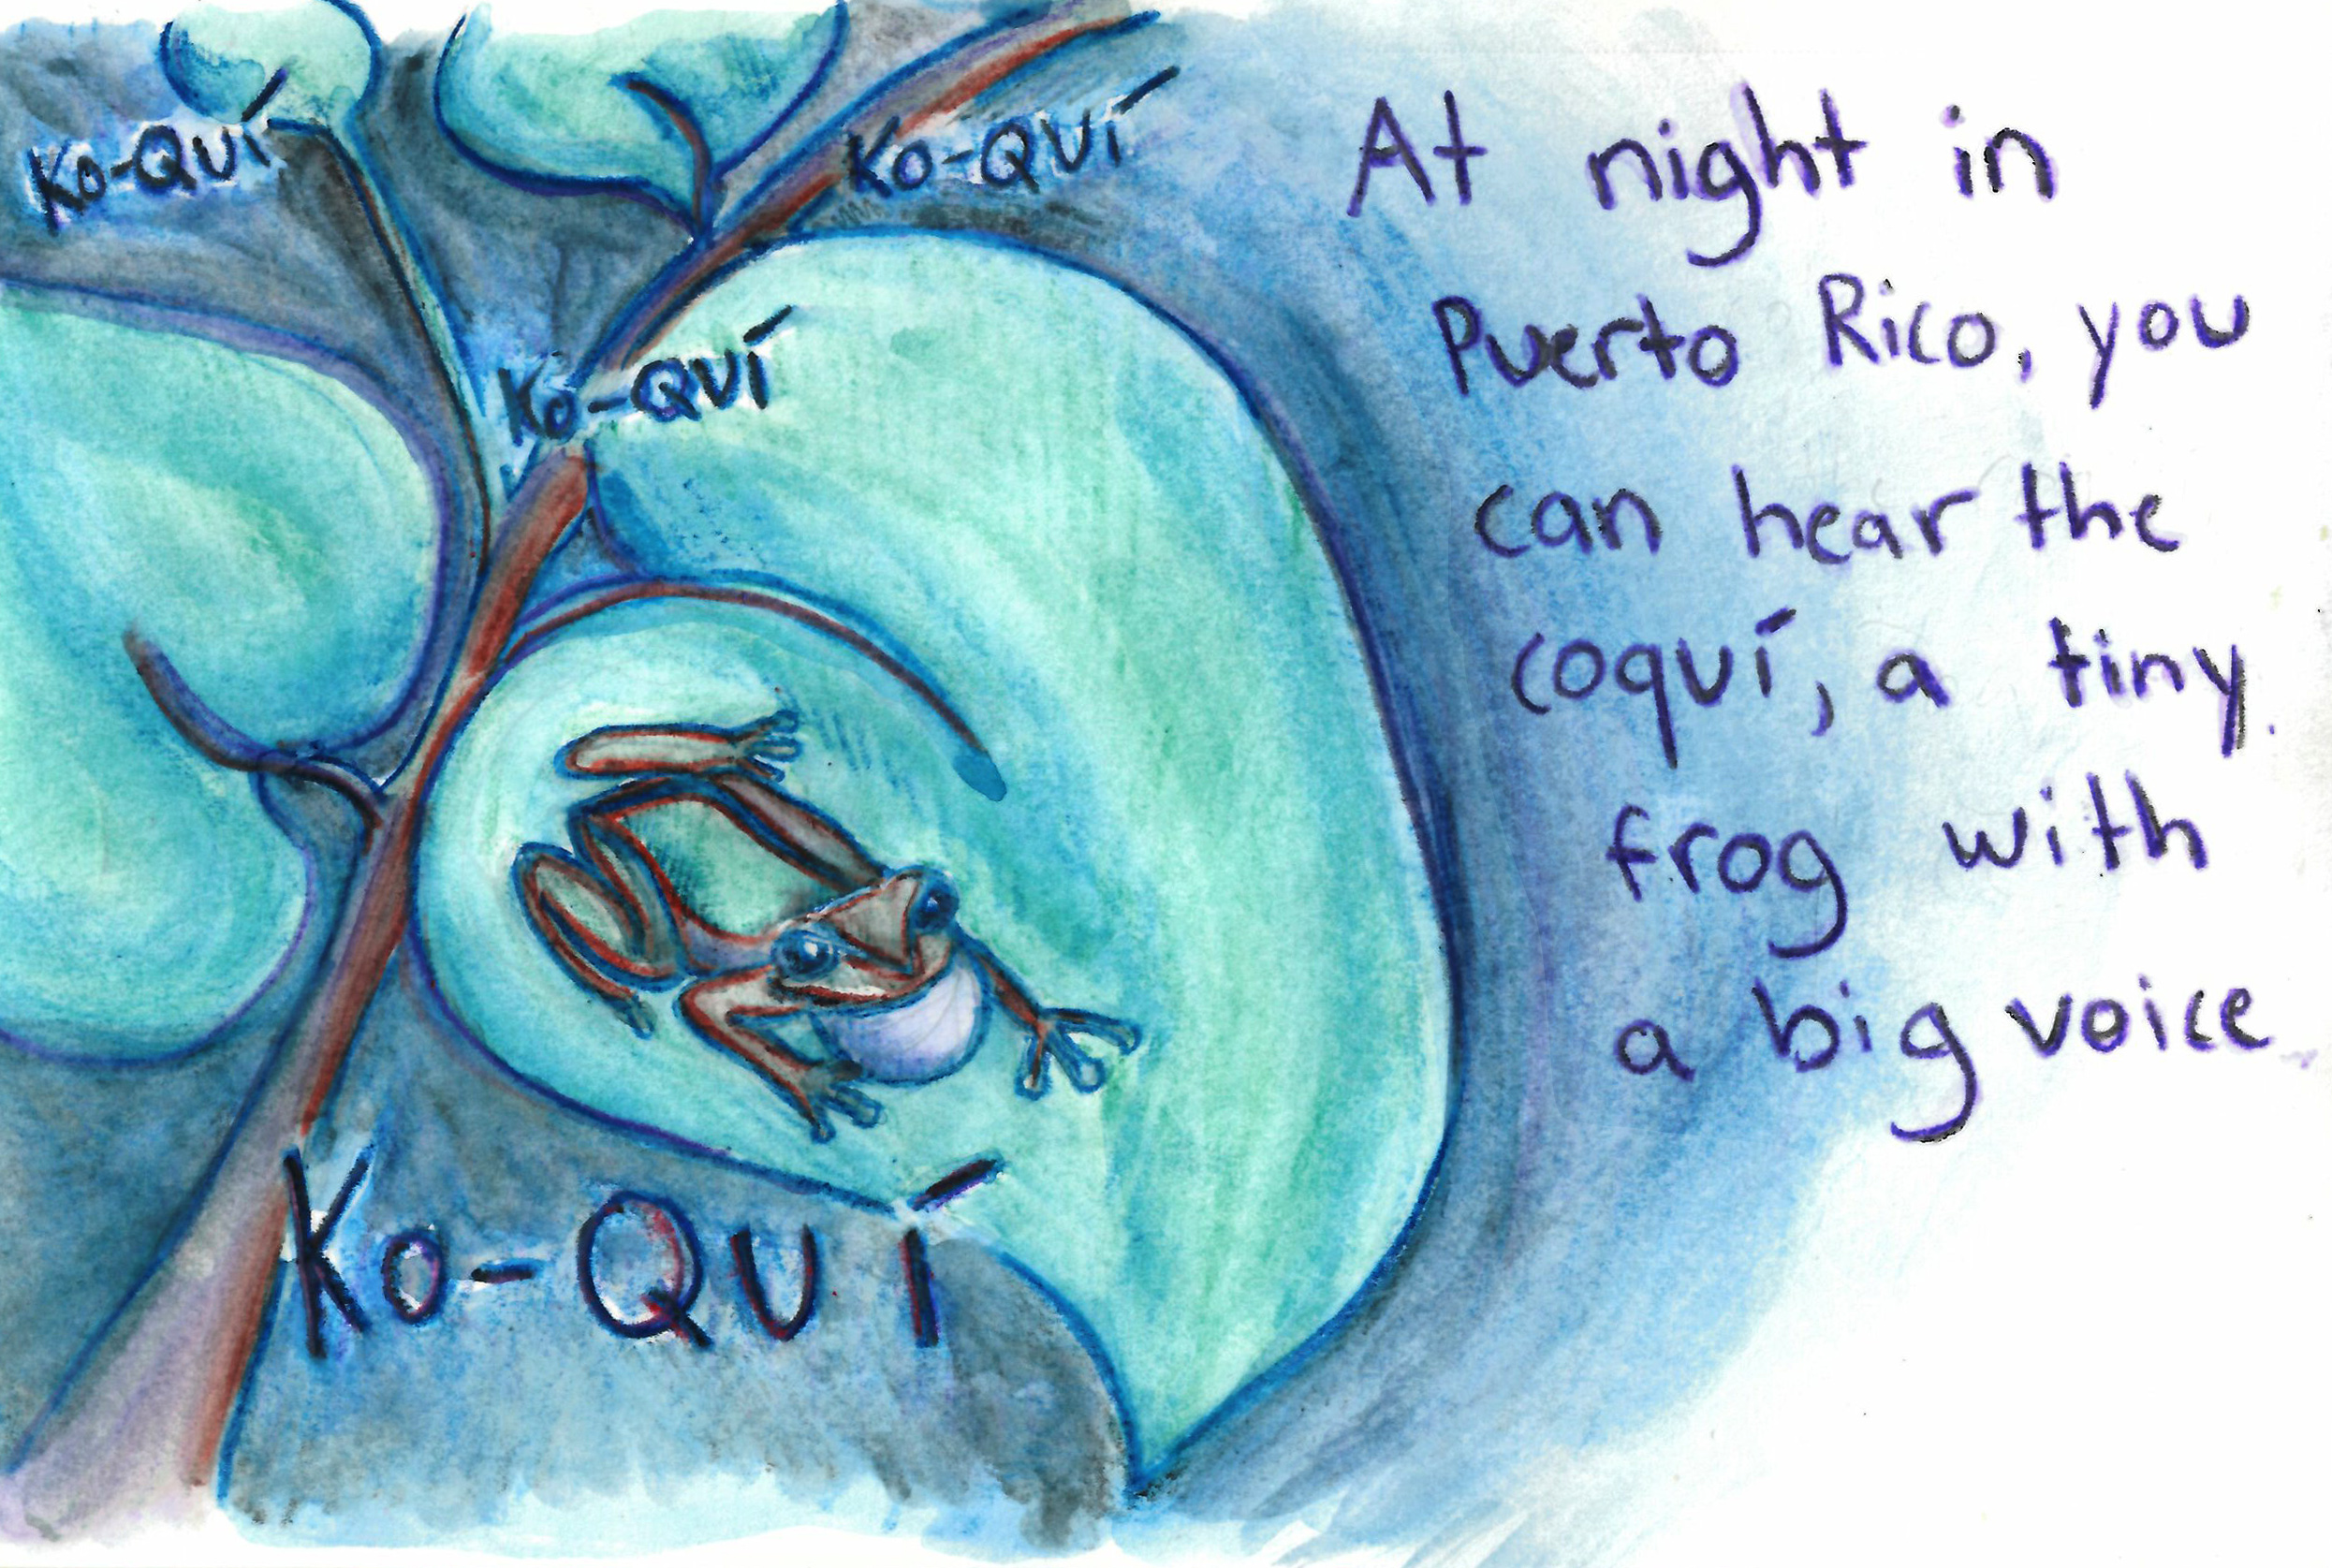 Ko-QUÍ
Ko-QUÍ
Ko-QUÍ
Ko-QUÍ
At night in
Puerto Rico, you
can hear the
coquí, a tiny
frog with
a big voice